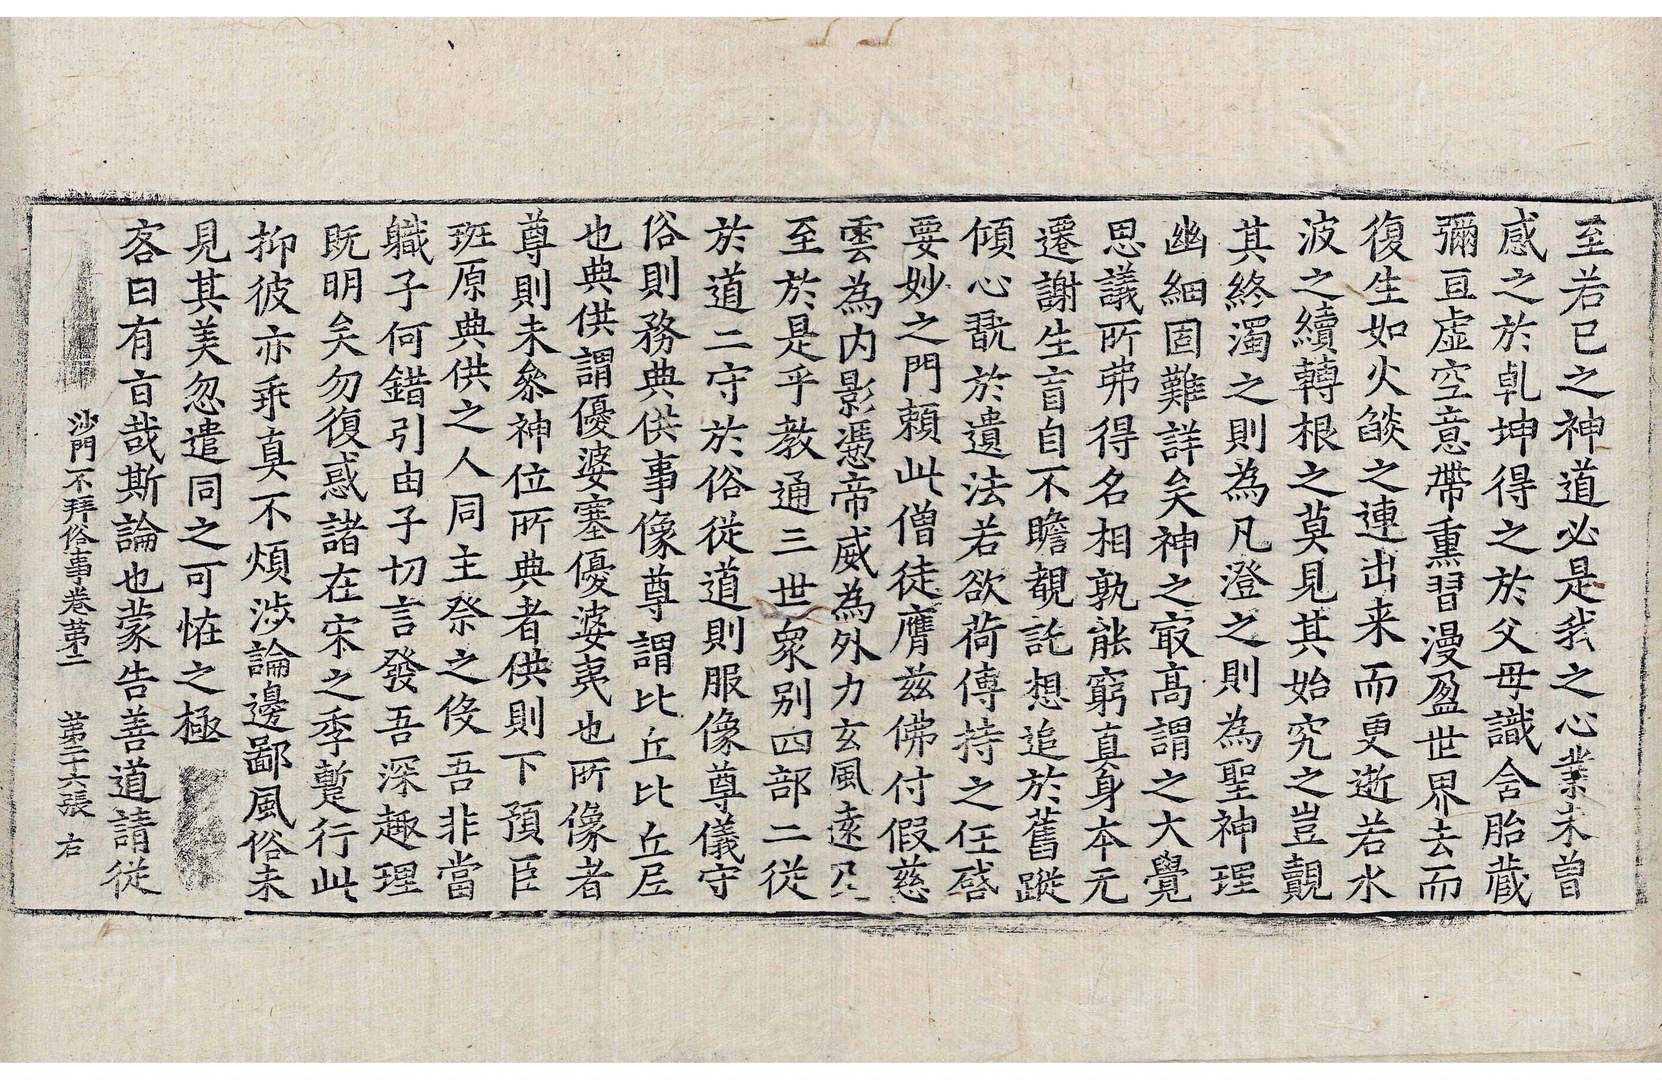 至若已之神道必是我之心業未曾
感之於乹坤得之於父母識含胎藏
彌亘虛空意帶熏習漫盈世界去而
復生如火燄之連出来而更逝若水
波之續轉根之莫見其始究之豈覿
其終濁之則為凡澄之則為聖神理
幽細固難詳矣神之㝡高謂之大覺
思議所弗得名相孰能窮真身本元
遷謝生盲自不瞻覩託想追於舊蹤
傾心翫於遺法若欲荷傳持之任啓
要妙之門賴此僧徒膺兹佛付假慈
雲為内影憑帝威為外力玄風遠及
至於是乎教通三世眾别四部二從
於道二守於俗從道則服像尊儀守
俗則務典供事像尊謂比丘比丘尼
也典供謂優婆塞優婆夷也所像者
尊則未叅神位所典者供則下預臣
班原典供之人同主祭之伇吾非當
軄子何錯引由子切言發吾深趣理
既明矣勿復惑諸在宋之季蹔行此
抑彼亦乖真不煩涉論邊鄙風俗未
見其美忽遣同之可恠之極
客曰有旨哉斯論也蒙告善道請從
沙門不拜俗事卷苐二　苐二十六張　右